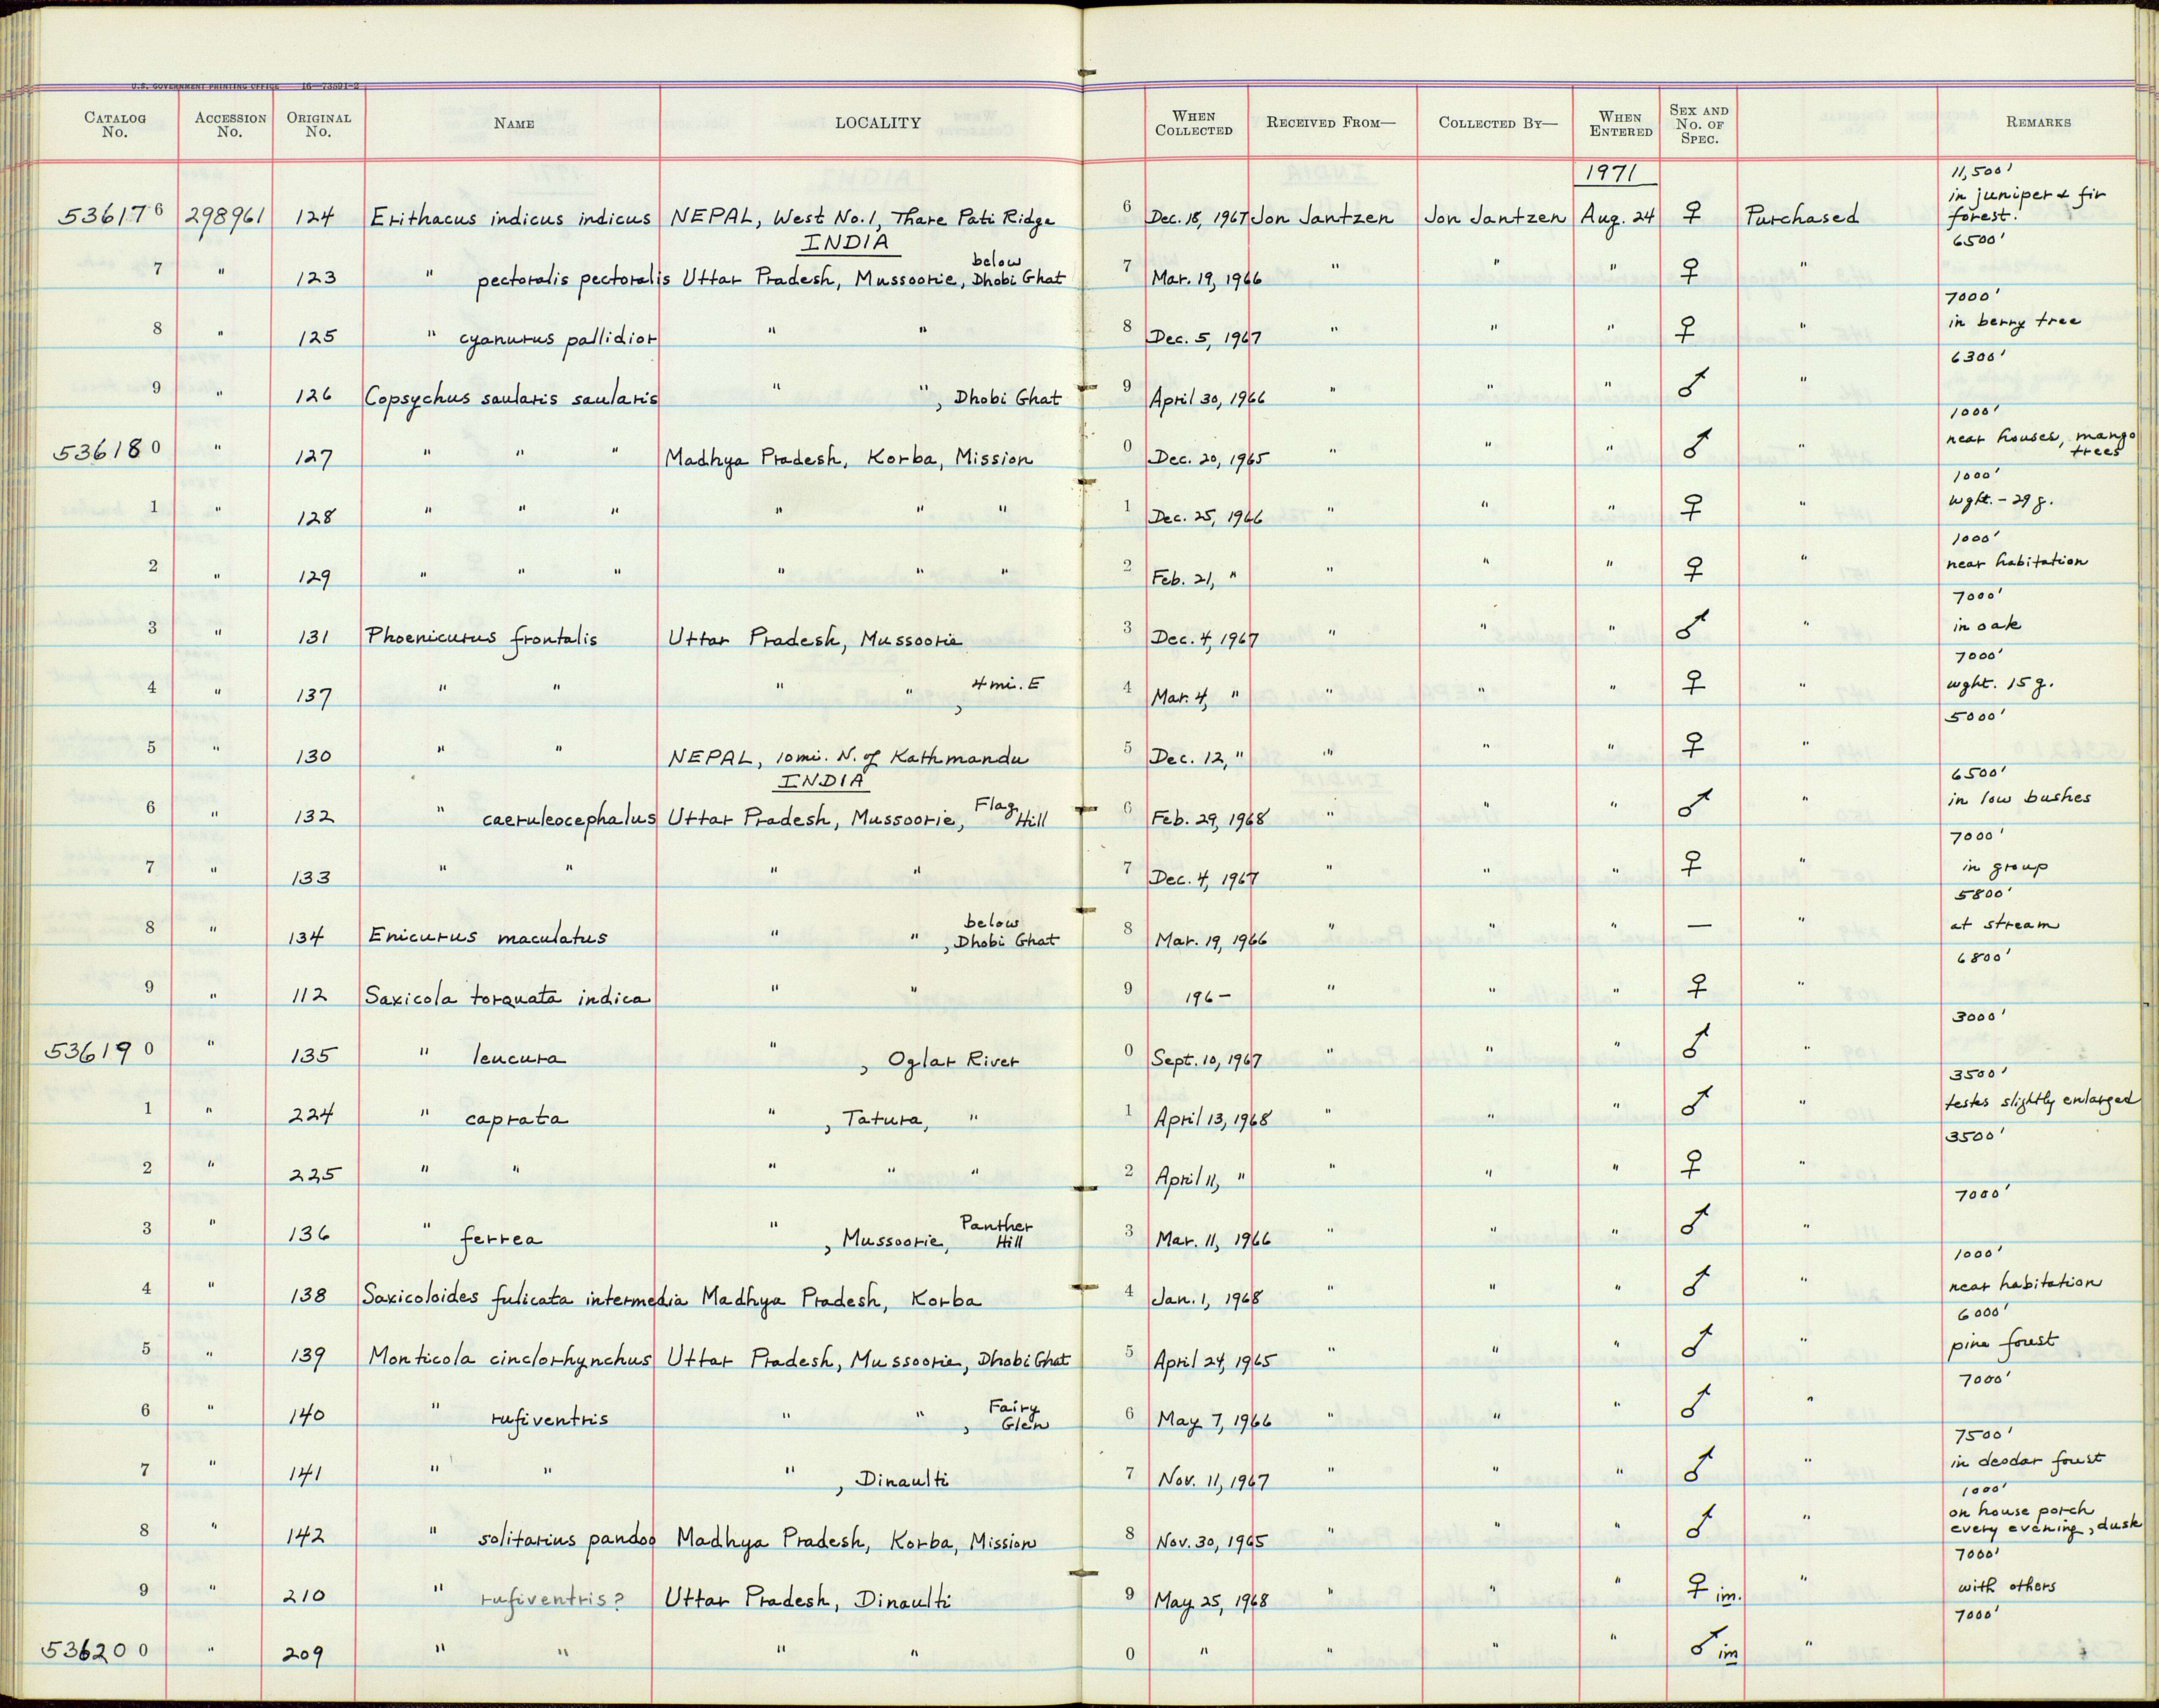 U.S. GOVERNMENT PRINTING OFFICE 16—73591-2
CATALOG No. ACCESSION No. ORIGINAL No. NAME LOCALITY WHEN COLLECTED RECEIVED FROM— COLLECTED BY— WHEN ENTERED SEX AND No. OF SPEC. REMARKS
1971 11,500'
536176 298961 124 Erithacus indicus indicus NEPAL, West No. 1, Thare Pati Ridge 6 Dec. 18, 1967 Jon Jantzen Jon Jantzen Aug. 24 ♀ Purchased in juniper & fir forest.
INDIA 6500'
7 " 123 " pectoralis pectoralis Uttar Pradesh, Mussoorie, below Dhobi Ghat 7 Mar. 19, 1966 " " " ♀ "
7000'
8 " 125 " cyanurus pallidior " " 8 Dec. 5, 1967 " " " ♀ " in berry tree
6300'
9 " 126 Copsychus saularis saularis " ", Dhobi Ghat 9 April 30, 1966 " " " ♂ "
1000'
536180 " 127 " " " Madhya Pradesh, Korba, Mission 0 Dec. 20, 1965 " " " ♂ " near houses, mango trees
1000'
1 " 128 " " " " " " 1 Dec. 25, 1966 " " " ♀ " wght. - 29 g.
1000'
2 " 129 " " " " " " 2 Feb. 21, " " " " ♀ " near habitation
7000'
3 " 131 Phoenicurus frontalis Uttar Pradesh, Mussoorie 3 Dec. 4, 1967 " " " ♂ " in oak
7000'
4 " 137 " " " " , 4 mi. E 4 Mar. 4, " " " " ♀ " wght. 15 g.
5000'
5 " 130 " " NEPAL, 10 mi. N. of Kathmandu 5 Dec. 12, " " " " ♀ "
INDIA 6500'
6 " 132 " caeruleocephalus Uttar Pradesh, Mussoorie, Flag Hill 6 Feb. 29, 1968 " " " ♂ " in low bushes
7000'
7 " 133 " " " " 7 Dec. 4, 1967 " " " ♀ " in group
5800'
8 " 134 Enicurus maculatus " " , below Dhobi Ghat 8 Mar. 19, 1966 " " " — " at stream
6800'
9 " 112 Saxicola torquata indica " " 9 196- " " " ♀ "
3000'
536190 " 135 " leucura " , Oglar River 0 Sept. 10, 1967 " " " ♂ "
3500'
1 " 224 " caprata " , Tatura, " 1 April 13, 1968 " " " ♂ " testes slightly enlarged
3500'
2 " 225 " " " " " 2 April 11, " " " " ♀ "
7000'
3 " 136 " ferrea " , Mussoorie, Panther Hill 3 Mar. 11, 1966 " " " ♂ "
1000'
4 " 138 Saxicoloides fulicata intermedia Madhya Pradesh, Korba 4 Jan. 1, 1968 " " " ♂ " near habitation
6000'
5 " 139 Monticola cinclorhynchus Uttar Pradesh, Mussoorie, Dhobi Ghat 5 April 24, 1965 " " " ♂ " pine forest
7000'
6 " 140 " rufiventris " " , Fairy Glen 6 May 7, 1966 " " " ♂ "
7500'
7 " 141 " " " , Dinaulti 7 Nov. 11, 1967 " " " ♂ " in deodar forest
1000'
8 " 142 " solitarius pandoo Madhya Pradesh, Korba, Mission 8 Nov. 30, 1965 " " " ♂ " on house porch every evening, dusk
7000'
9 " 210 " rufiventris? Uttar Pradesh, Dinaulti 9 May 25, 1968 " " " ♀ im. " with others
7000'
536200 " 209 " " " " 0 " " " " ♂ im "